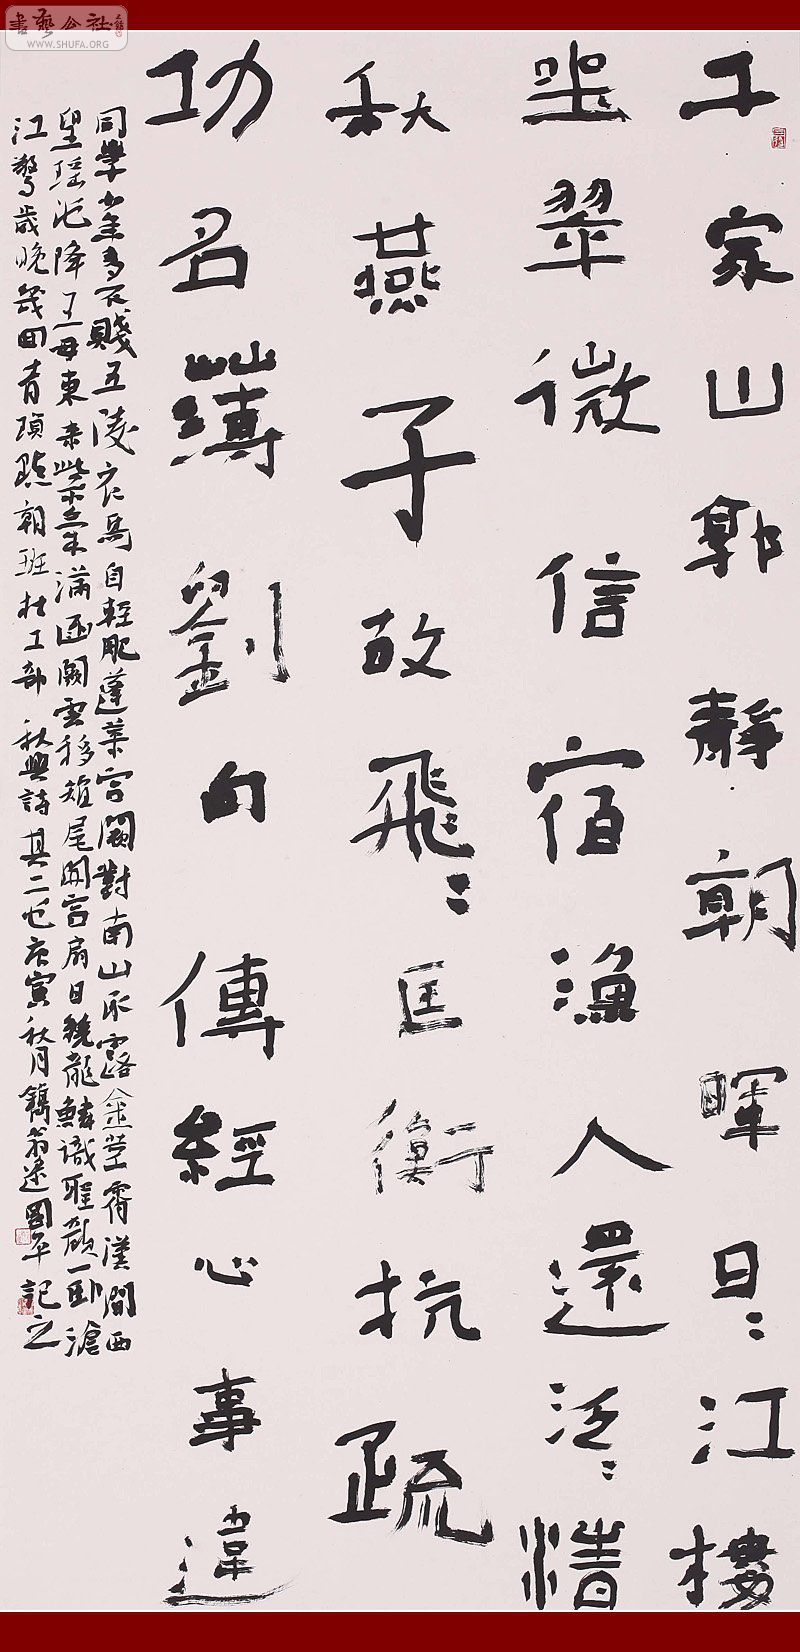 千家山郭靜朝暉日〻江樓
坐翠微信宿漁人還泛〻清
秋燕子故飛〻匡衡抗疏
功名薄劉向傳經心事違
同學少年多不賤五陵衣馬自輕肥蓬萊宮闕對南山承露金莖霄漢間西
望瑤池降王母東來紫氣滿函關雲移雉尾開宮扇日繞龍鱗識聖顏一臥滄
江驚歲晚幾回青瑣點朝班杜工部秋興詩其二也庚寅秋月鐫翁迷國平記之
書藝公社
WWW.SHUFA.ORG